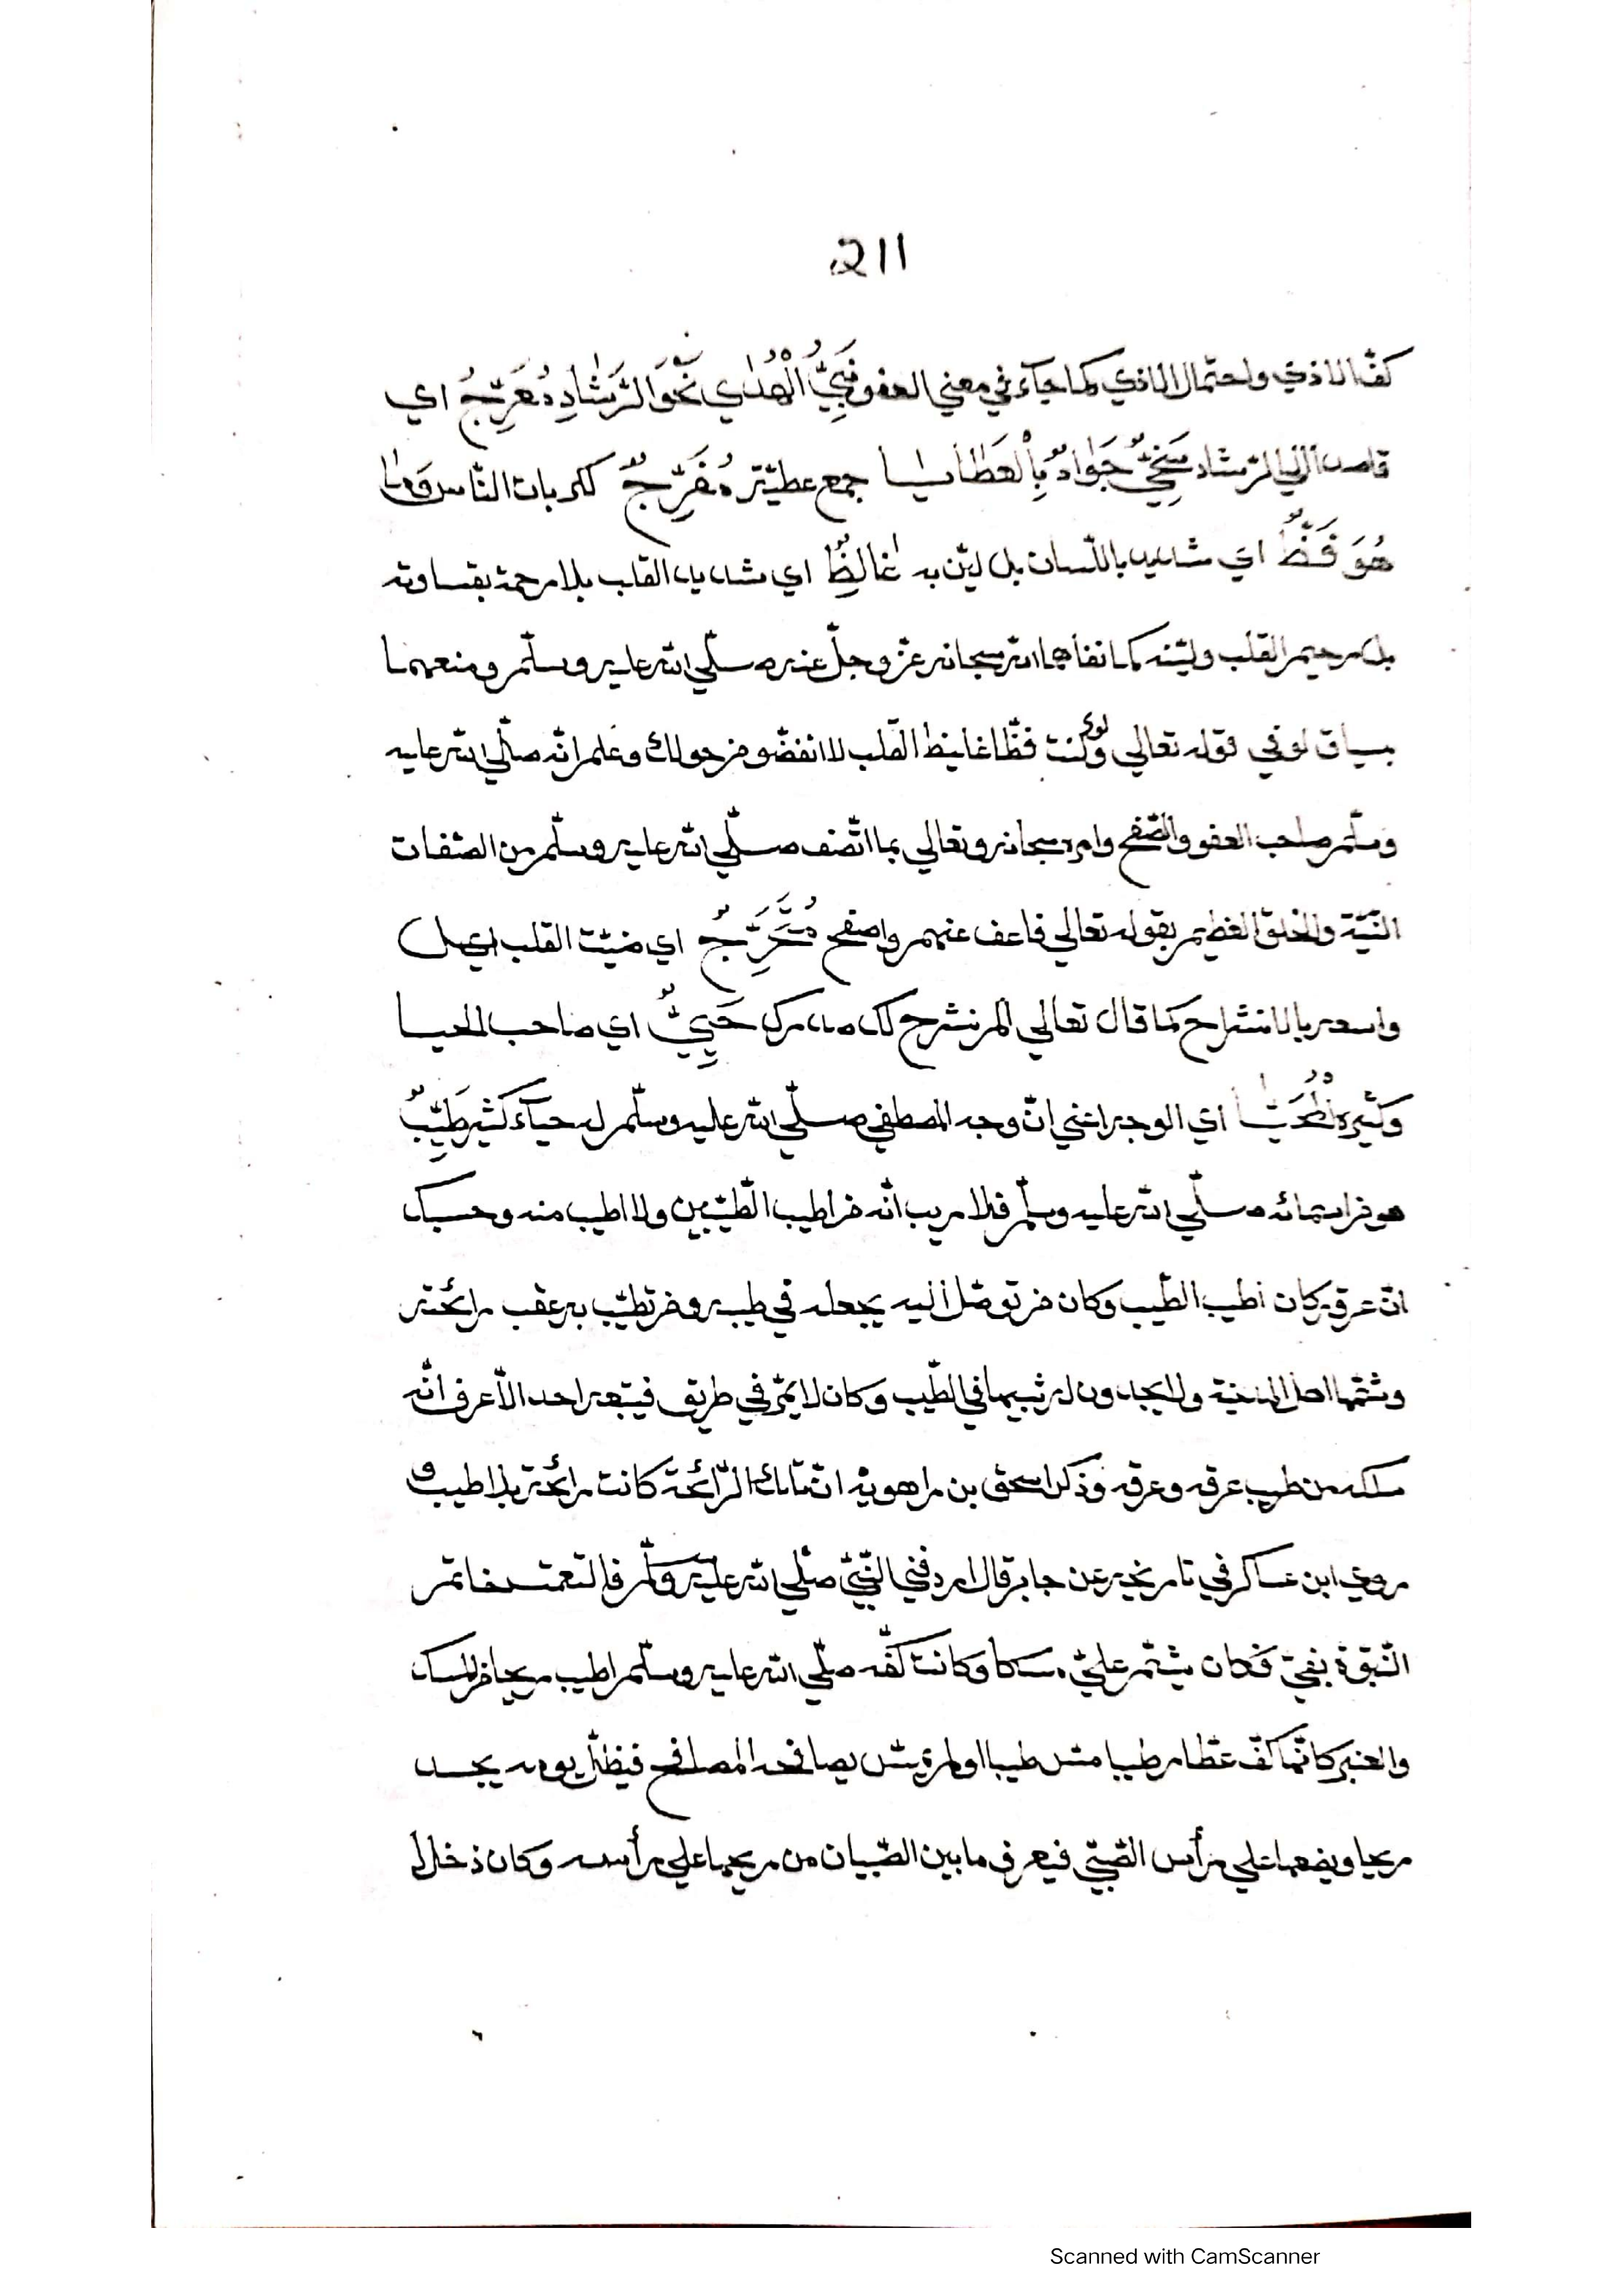 211
كفّ الاذي واحتمال الاذي كما جآء في معني العفو نَبِيُّ الْهُدٰاي نَحْوَ الرَّشٰادِ مُعَرِّجُ اي
قاصدا الي الرّشاد سَخِيٌّ جَوٰادٌ بِالْعَطٰايٰا جمع عطيّة مُفَرِّجٌ لكربات النّاس وَمٰا
هُوَ فَظٌّ اي شديد باللّسان بل ليّن به غٰالِظٌ اي شديد القلب بلا رحمة بقساوته
بل رحيم القلب وليّنه كما نفاهما الله سبحانه عزّ وجلّ عنه صلّي الله عليه وسلّم ومنعهما
بسياق لو في قوله تعالي ولو كنت فظّا غليظ القلب لاانفضّو من حولك وعلم انّه صلّي الله عليه
وسلّم صاحب العفو والصّفح وامره سبحانه وتعالي بما اتّصف صلّي الله عليه وسلّم من الصّفات
النّيّة والخلق العظيم بقوله تعالي فاعف عنهم واصفح مُتَّحَرِّجٌ اي ضيّت القلب اي بل
واسعه بالانشراح كما قال تعالي الم نشرح لك صدرك حَيِيٌّ اي صاحب الحيا
وكثيره اي الوجه اعني انّ وجه المصطفي صلّي الله عليه وسلّم له حيآء كثير طَيِّبٌ
هو من اسمائه صلّي الله عليه وسلّم فلا ريب انّه من اطيب الطّيّبين ولا اطيب منه وحسبك
انّ عرقه كان اطيب الطّيب وكان من توصّل اليه يجعله في طيبه ومن تطيّب به عقب رائحته
وشمّها اهل المدينة ولا يجدون له شبيها في الطّيب وكان لا يمرّ في طريق فيتبعه احد الاّ عرف انّه
سلكه من طيب عرقه وعرفه وذكر اسحق بن راهويه انّ تلك الرّائحة كانت رائحته بلا طيب و
روي ابن عساكر في تاريخه عن جابر قال اردفني النّبيّ صلّي الله عليه وسلّم فالتقمت خاتم
النّبوّة بفيّ فكان يشمّ عليّ مسكا وكانت كفّه صلّي الله عليه وسلّم اطيب ريحا من المسك
والعنبر كانّما كفّ عطّار طيبا مسّ طيبا او لم يمسّ يصافحه المصافح فيظلّ يومه يجد
ريحها ويضعها علي رأس الصّبيّ فيعرف ما بين الصّبيان من ريحها علي رأسه وكان ذخلا
Scanned with CamScanner